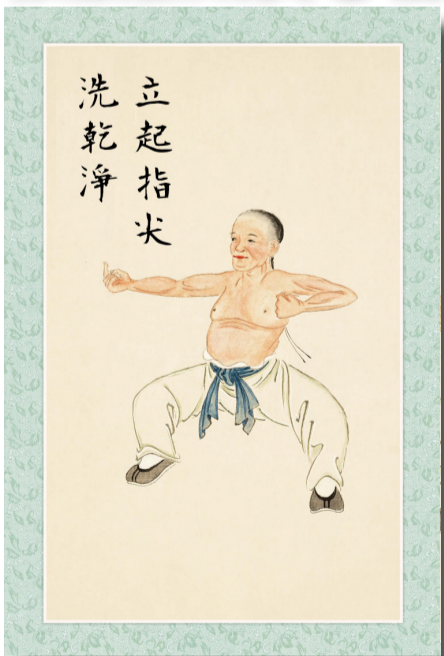 立起指尖
洗乾淨